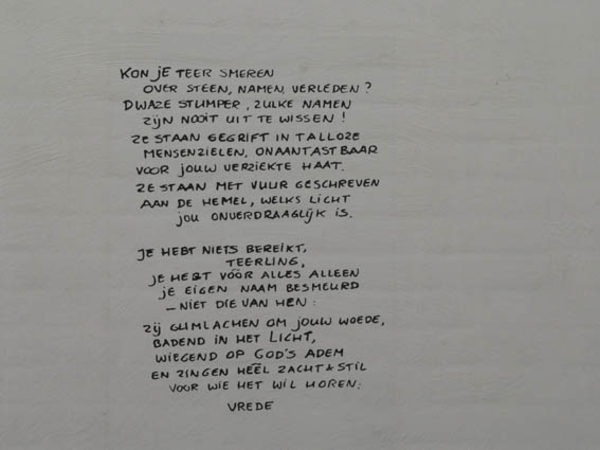 KON JE TEER SMEREN
OVER STEEN, NAMEN, VERLEDEN?
DWAZE STUMPER, ZULKE NAMEN
ZIJN NOOIT UIT TE WISSEN!
ZE STAAN GEGRIFT IN TALLOZE
MENSENZIELEN, ONAANTASTBAAR
VOOR JOUW VERZIEKTE HAAT.
ZE STAAN MET VUUR GESCHREVEN
AAN DE HEMEL, WELKS LICHT
JOU ONVERDRAAGLIJK IS.
JE HEBT NIETS BEREIKT,
TEERLING,
JE HEBT VÓÓR ALLES ALLEEN
JE EIGEN NAAM BESMEURD
– NIET DIE VAN HEN:
ZIJ GLIMLACHEN OM JOUW WOEDE,
BADEND IN HET LICHT,
WIEGEND OP GOD'S ADEM
EN ZINGEN HÉÉL ZACHT & STIL
VOOR WIE HET WIL HOREN:
VREDE